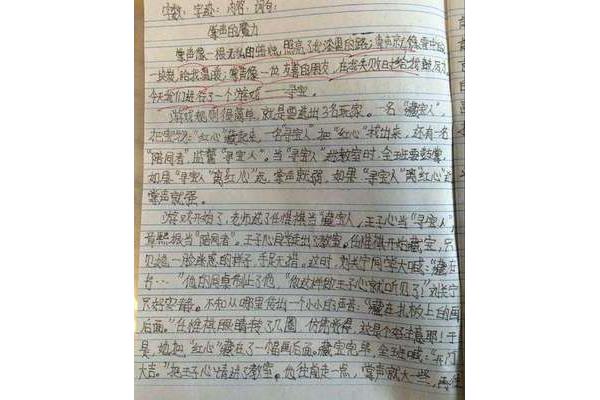 掌声的魔力
掌声像一根无私的蜡烛,照亮了我漆黑的路;掌声像雪中的
一块炭,给我温暖;掌声像一位友善的朋友,在我失败时给我鼓励。
今天我们进行了一个游戏——寻宝。
游戏规则很简单,就是要选出3名玩家。一名“藏宝人”,
把宝物“红心”藏起来,一名“寻宝人”把“红心”找出来,还有一名
“陪同者”,监督“寻宝人”。当“寻宝人”进教室时,全班要鼓掌,
如果“寻宝人”离红心远,掌声就弱,如果“寻宝人”离“红心”近
掌声就强。
游戏开始了,老师选了任惟祺当“藏宝人”,王子心当“寻宝人”,
担当“陪同者”。王子心同学走出了教室。任惟祺开始藏宝,只
见她一脸迷惑的样子,手足无措。这时,刘长宁同学大喊:“藏在
台…”他的同桌制止了他,“你这样做王子心就听见了!”刘长宁
只好安静。不知从哪里传出一个小小的声音:“藏在扎板上的画
后面。”任惟祺眼睛转了几圈,仿佛觉得,这是个好主意耶!于
是,她把“红心”藏在了一幅画后面。藏宝完毕,全班喊:“开门
大吉。”把王子心请进了教室。他往前走一点,掌声就大一些,再往